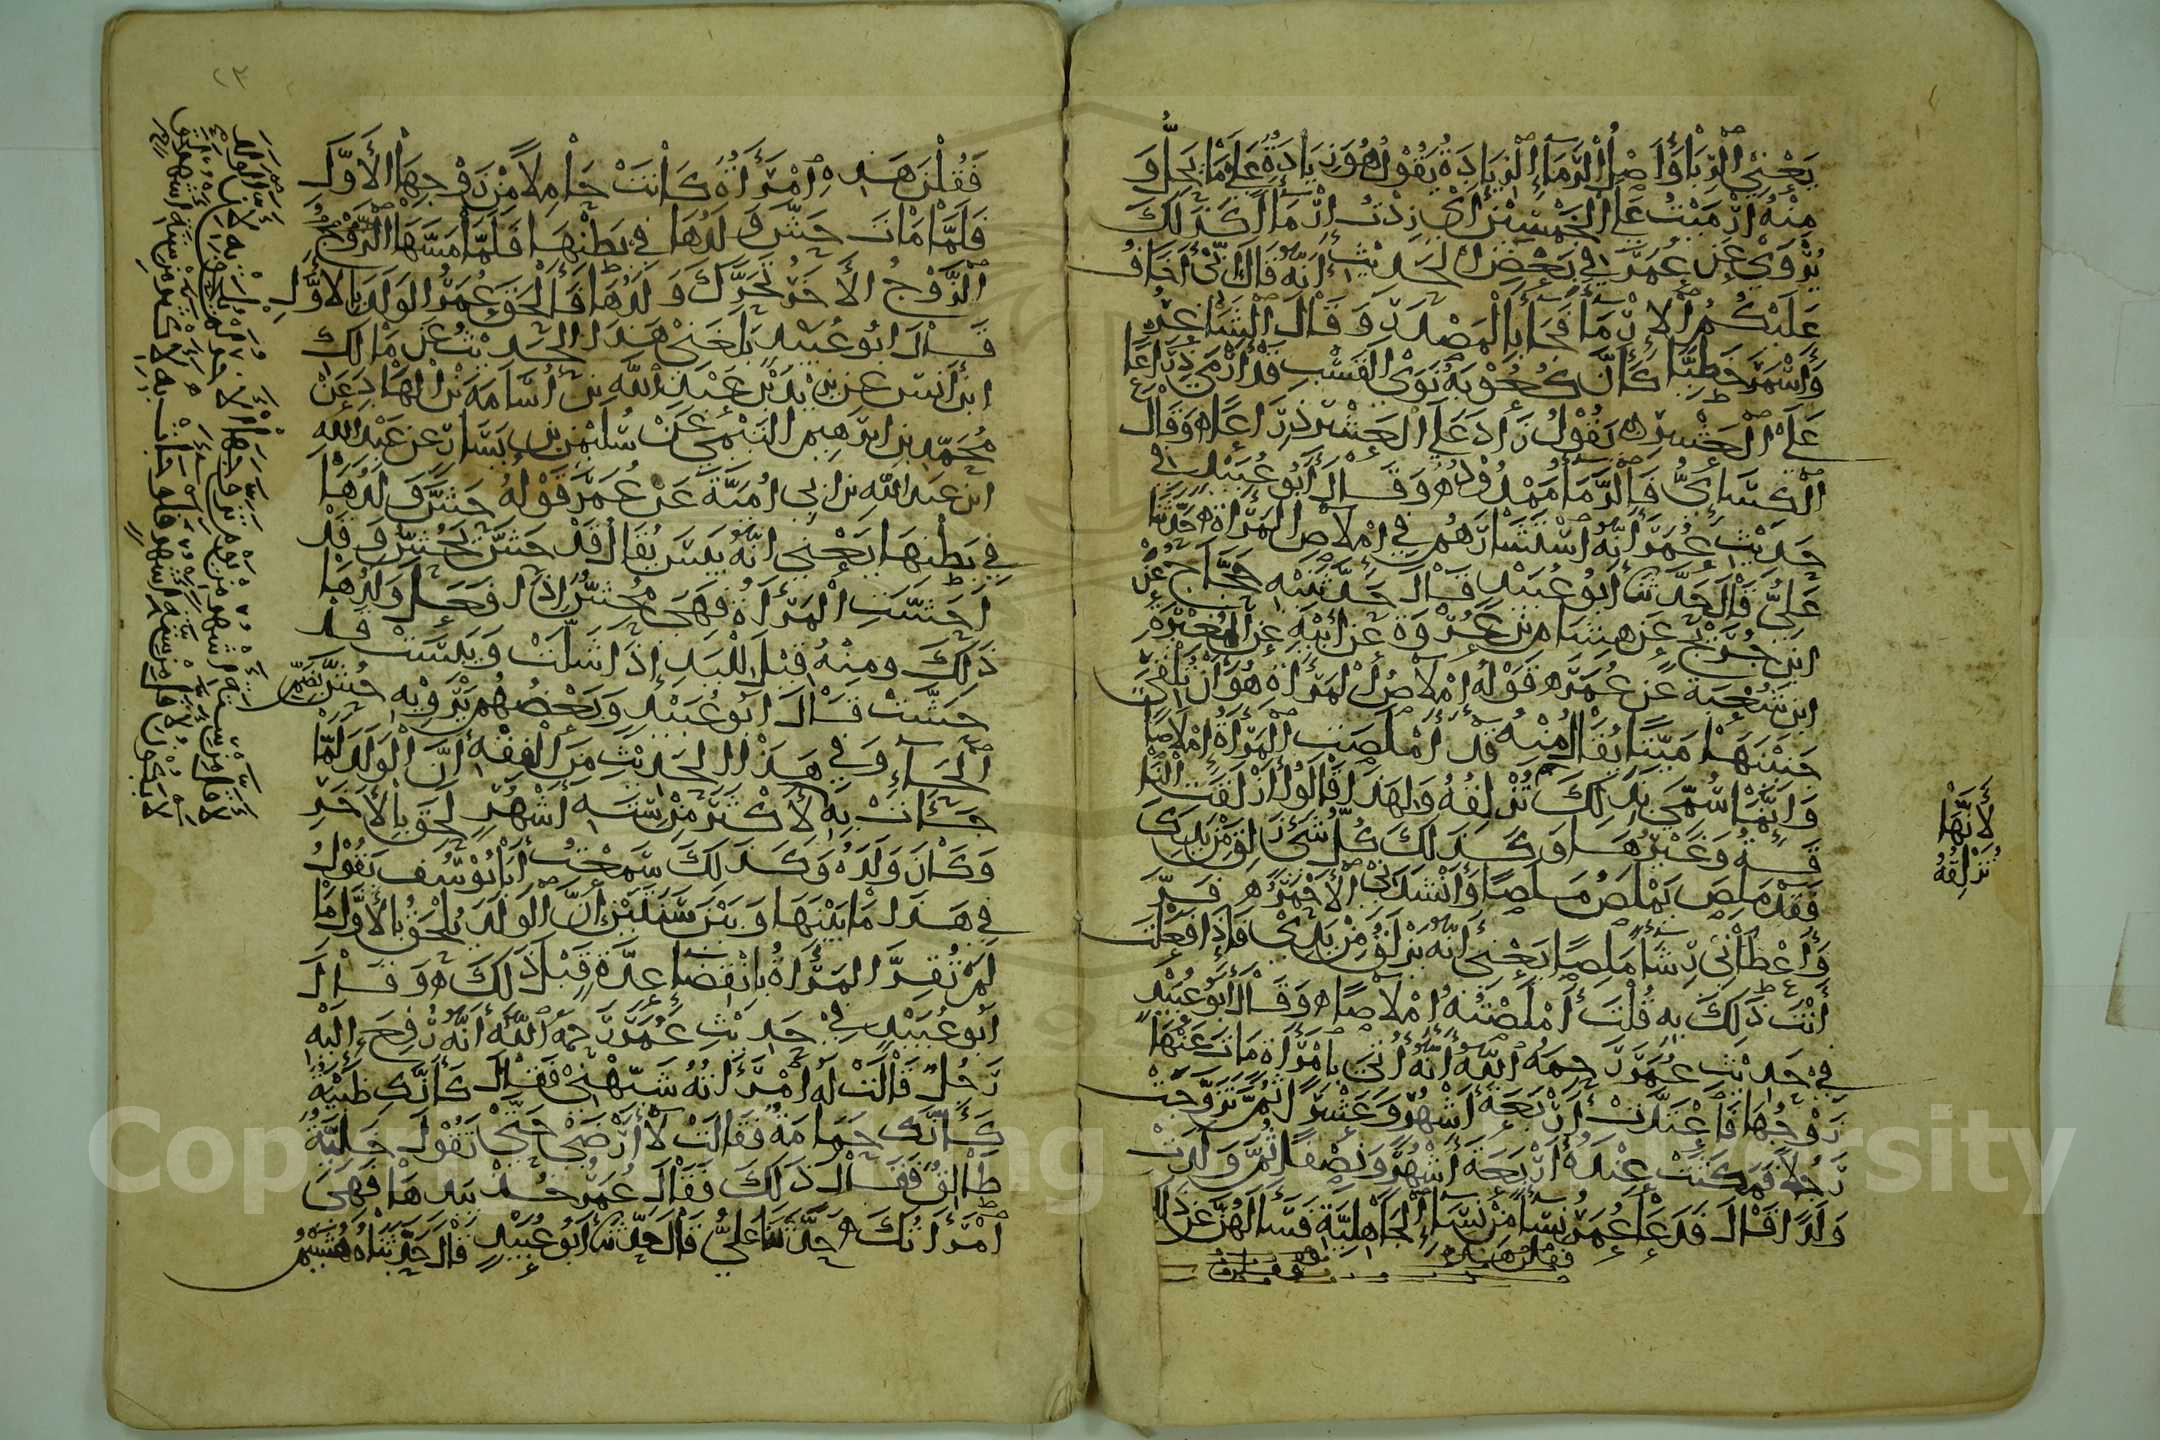 يَعْنِي الرِّبَا وَأَصْلُ الرَّمَاءِ الزِّيَادَةُ يَقُوْلُ هُوَ زِيَادَةٌ عَلَى مَا يَحِلُّ وَ
مِنْهُ أَرْمَيْتُ عَلَى الْخَمْسِيْنَ أَيْ زِدْتُ إِرْمَاءً كَذَلِكَ
يُرْوَى عَنْ عُمَرَ فِي بَعْضِ الْحَدِيْثِ أَنَّهُ قَالَ إِنِّي أَخَافُ
عَلَيْكُمُ الْإِرْمَاءَ فَجَاءَ بِالْمَصْدَرِ وَقَالَ الشَّاعِرُ
وَأَسْمَرَ خَطِيًّا كَأَنَّ كُعُوْبَهُ نَوَى الْقَسْبِ قَدْ أَرْمَى ذِرَاعًا
عَلَى الْعَشْرِ يَقُوْلُ زَادَ عَلَى الْعَشْرِ ذِرَاعًا وَقَالَ
الْكِسَائِيُّ فَالرَّمَاءُ مَمْدُوْدٌ وَقَالَ أَبُو عُبَيْدٍ فِي
حَدِيْثِ عُمَرَ أَنَّهُ اسْتَشَارَهُمْ فِي إِمْلَاصِ الْمَرْأَةِ حَدَّثَنَا
عَلِيٌّ قَالَ حَدَّثَنَا أَبُو عُبَيْدٍ قَالَ حَدَّثَنِيْهِ حَجَّاجٌ عَنْ
ابْنِ جُرَيْجٍ عَنْ هِشَامِ بْنِ عُرْوَةَ عَنْ أَبِيْهِ عَنِ الْمُغِيْرَةِ
ابْنِ شُعْبَةَ عَنْ عُمَرَ قَوْلُهُ إِمْلَاصُ الْمَرْأَةِ هُوَ أَنْ تُلْقِيَ
جَنِيْنَهَا مَيِّتًا يُقَالُ مِنْهُ قَدْ أَمْلَصَتِ الْمَرْأَةُ إِمْلَاصًا
وَإِنَّمَا سُمِّيَ بِذَلِكَ تُزْلِقُهُ وَلِهَذَا قَالُوا أَزْلَقَتِ النَّا
قَةُ وَغَيْرُهَا وَكَذَلِكَ كُلُّ شَيْءٍ زَلِقَ مِنْ يَدِكَ
فَقَدْ مَلِصَ يَمْلَصُ مَلَصًا وَأَنْشَدَنِي الْأَحْمَرُ فَرَّ
وَأَعْطَانِي رِشَاءً مَلِصًا يَعْنِي أَنَّهُ يَزْلَقُ مِنْ يَدِيْ فَإِذَا فَعَلْتَ
أَنْتَ ذَلِكَ بِهِ قُلْتَ أَمْلَصْتُهُ إِمْلَاصًا وَقَالَ أَبُو عُبَيْدٍ
فِي حَدِيْثِ عُمَرَ رَحِمَهُ اللَّهُ أَنَّهُ أُتِيَ بِامْرَأَةٍ مَاتَ عَنْهَا
زَوْجُهَا فَاعْتَدَّتْ أَرْبَعَةَ أَشْهُرٍ وَعَشْرًا ثُمَّ تَزَوَّجَتْ
رَجُلًا فَمَكَثَتْ عِنْدَهُ أَرْبَعَةَ أَشْهُرٍ وَنِصْفًا ثُمَّ وَلَدَتْ
وَلَدًا قَالَ فَدَعَا عُمَرُ نِسَاءً مِنْ نِسَاءِ الْجَاهِلِيَّةِ فَسَأَلَهُنَّ عَنْ ذَلِكَ
فقلن هذه
لِأَنَّهَا
تُزْلِقُهُ
فَقُلْنَ هَذِهِ امْرَأَةٌ كَانَتْ حَامِلًا مِنْ زَوْجِهَا الْأَوَّلِ
فَلَمَّا مَاتَ حَشَّ وَلَدُهَا فِي بَطْنِهَا فَلَمَّا مَسَّهَا الزَّوْجُ
الزَّوْجُ الْآخَرُ تَحَرَّكَ وَلَدُهَا فَأَلْحَقَ عُمَرُ الْوَلَدَ بِالْأَوَّلِ
قَالَ أَبُو عُبَيْدٍ بَلَغَنِي هَذَا الْحَدِيْثُ عَنْ مَالِكِ
ابْنِ أَنَسٍ عَنْ يَزِيْدَ بْنِ عَبْدِ اللَّهِ بْنِ أُسَامَةَ بْنِ الْهَادِ عَنْ
مُحَمَّدِ بْنِ إِبْرَهِيْمَ التَّيْمِيِّ عَنْ سُلَيْمَنَ بْنِ يَسَارٍ عَنْ عَبْدِ اللَّهِ
ابْنِ عَبْدِ اللَّهِ بْنِ أَبِي أُمَيَّةَ عَنْ عُمَرَ قَوْلُهُ حَشَّ وَلَدُهَا
فِي بَطْنِهَا يَعْنِي أَنَّهُ يَبِسَ يُقَالُ قَدْ حَشَّ يَحُشُّ وَقَدْ
أَحَشَّتِ الْمَرْأَةُ فَهِيَ مُحِشٌّ إِذَا فَعَلَ وَلَدُهَا
ذَلِكَ وَمِنْهُ قِيْلَ لِلْيَدِ إِذَا شَلَّتْ وَيَبِسَتْ قَدْ
حَشَّتْ قَالَ أَبُو عُبَيْدٍ وَبَعْضُهُمْ يَرْوِيْهِ حُشَّ بِضَمِّ
الْحَاءِ وَفِي هَذَا الْحَدِيْثِ مِنَ الْفِقْهِ أَنَّ الْوَلَدَ لَمَّا
جَاءَتْ بِهِ لِأَكْثَرَ مِنْ سِتَّةِ أَشْهُرٍ لَحِقَ بِالْآخَرِ
وَكَانَ وَلَدَهُ وَكَذَلِكَ سَمِعْتُ أَبَا يُوْسُفَ يَقُوْلُ
فِي هَذَا مَا بَيْنَهَا وَبَيْنَ سَنَتَيْنِ إِنَّ الْوَلَدَ يُلْحَقُ بِالْأَوَّلِ مَا
لَمْ تُقِرَّ الْمَرْأَةُ بِانْقِضَاءِ عِدَّةٍ قَبْلَ ذَلِكَ وَقَالَ
أَبُو عُبَيْدٍ فِي حَدِيْثِ عُمَرَ رَحِمَهُ اللَّهُ أَنَّهُ رُفِعَ إِلَيْهِ
رَجُلٌ قَالَتْ لَهُ امْرَأَتُهُ شَبِّهْنِي فَقَالَ كَأَنَّكِ ظَبْيَةٌ
كَأَنَّكِ حَمَامَةٌ فَقَالَتْ لَا أَرْضَى حَتَّى تَقُوْلَ خَلِيَّةٌ
طَالِقٌ فَقَالَ ذَلِكَ فَقَالَ عُمَرُ خُذْ بِيَدِهَا فَهِيَ
امْرَأَتُكَ حَدَّثَنَا عَلِيٌّ قَالَ حَدَّثَنَا أَبُو عُبَيْدٍ قَالَ حَدَّثَنَاهُ هُشَيْمٌ
Copyright © King Saud University